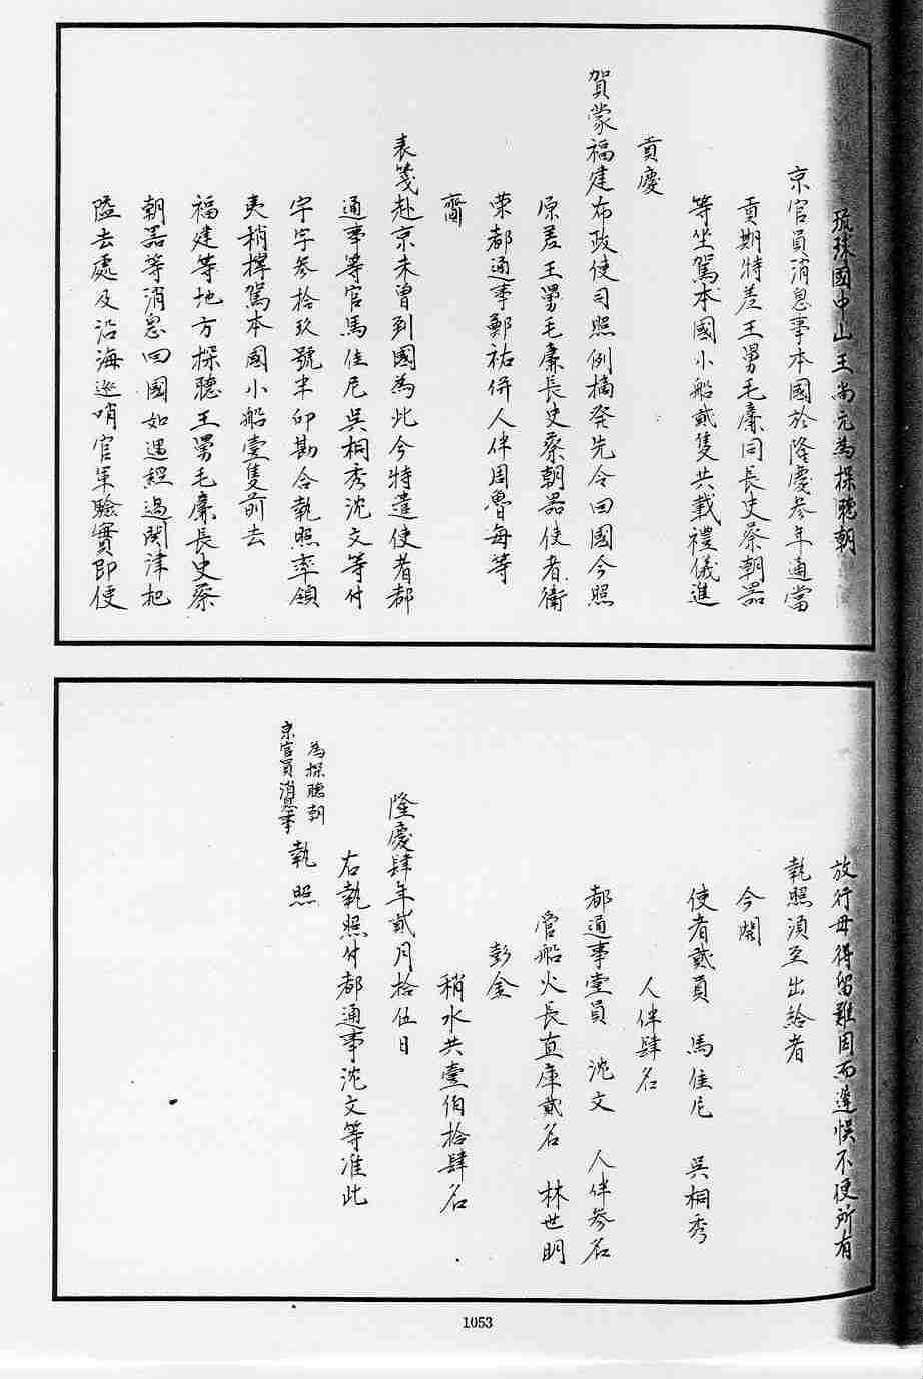 琉球國中山王尚元為探聽朝
京官員消息事本國於隆慶參年通當
貢期特差王舅毛廉同長史蔡朝器
等坐駕本國小船貳隻共載禮儀進
貢慶
賀蒙福建布政使司照例摘發先令回國今照
原差王舅毛廉長史蔡朝器使者衛
榮都通事鄭祐併人伴周魯每等
齎
表箋赴京未曾到國為此今特遣使者都
通事等官馬佳尼吳桐秀沈文等付
宇字參拾玖號半印勘合執照率領
夷稍撑駕本國小船壹隻前去
福建等地方探聽王舅毛廉長史蔡
朝器等消息回國如遇經過関津把
隘去處及沿海巡哨官軍驗實即便
放行毋得留難因而遲悞不便所有
執照須至出給者
今開
使者貳員　馬佳尼　吳桐秀
人伴肆名
都通事壹員　沈文　人伴參名
管船火長直庫貳名　林世明
彭金
稍水共壹伯拾肆名
隆慶肆年貳月拾伍日
右執照付都通事沈文等准此
為探聽朝
京官員消息事
執照
1053